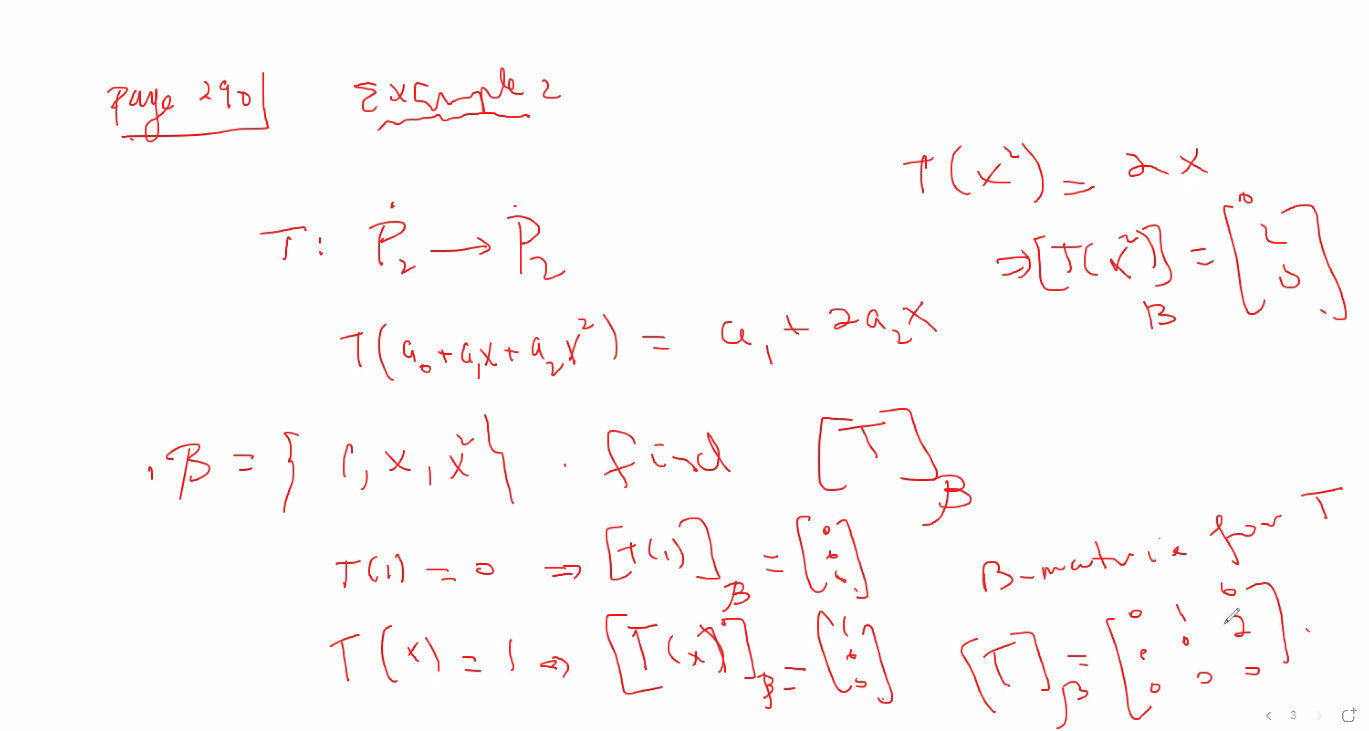 Page 290 Example 2
T: P₂ → P₂
T(a₀+a₁x+a₂x²) = a₁ + 2a₂x
B = { 1, x, x² } . find [T]_B
T(1) = 0 ⇒ [T(1)]_B = [0 0 0]
T(x) = 1 ⇒ [T(x)]_B = [1 0 0]
T(x²) = 2x
⇒ [T(x²)]_B = [0 2 0]
B-matrix for T
[T]_B = [0 1 0
0 0 2
0 0 0] .
3